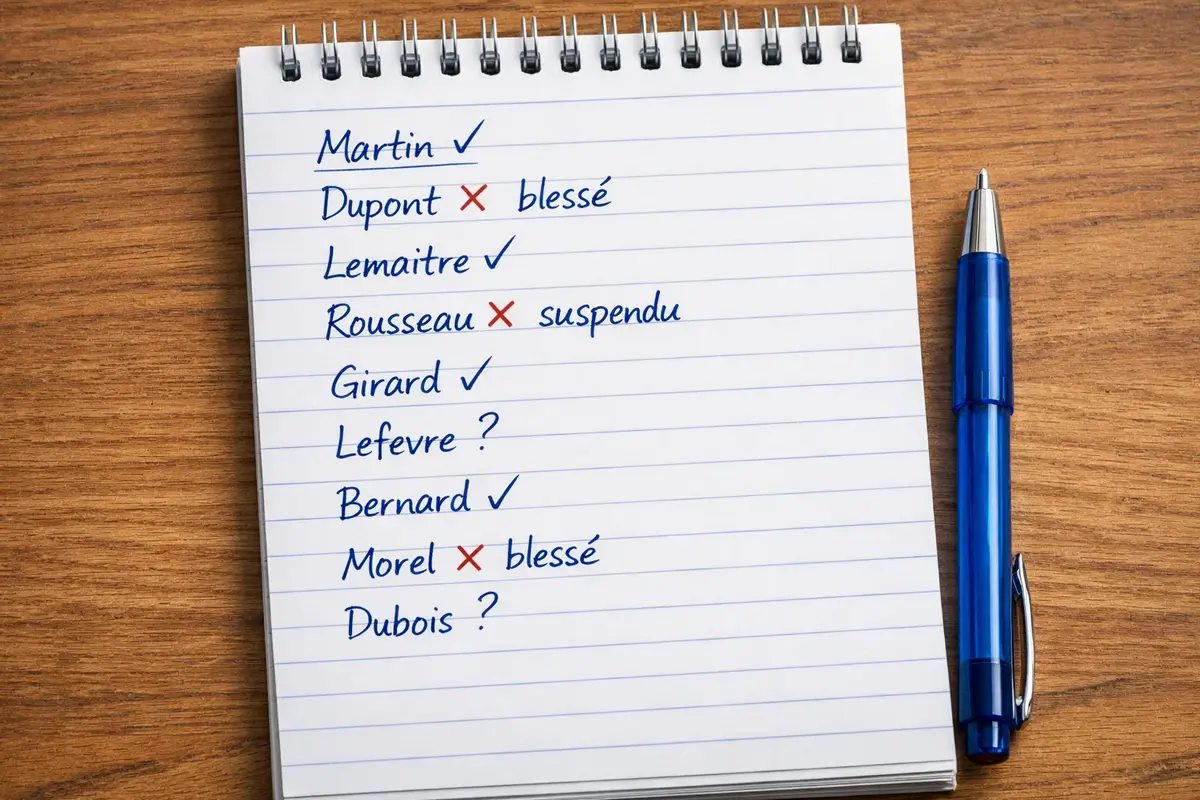 Martin ✓
Dupont ✗ blessé
Lemaitre ✓
Rousseau ✗ suspendu
Girard ✓
Lefevre ?
Bernard ✓
Morel ✗ blessé
Dubois ?